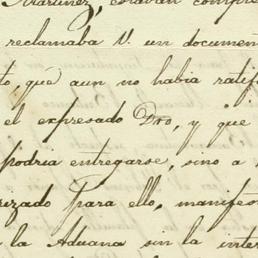 Martinez, estaban compre
reclamaba V. un documen
to, que aun no habia ratif
el expresado Dro, y que
podria entregarse, sino a
rizado para ello, manifes
la Aduana sin la inter